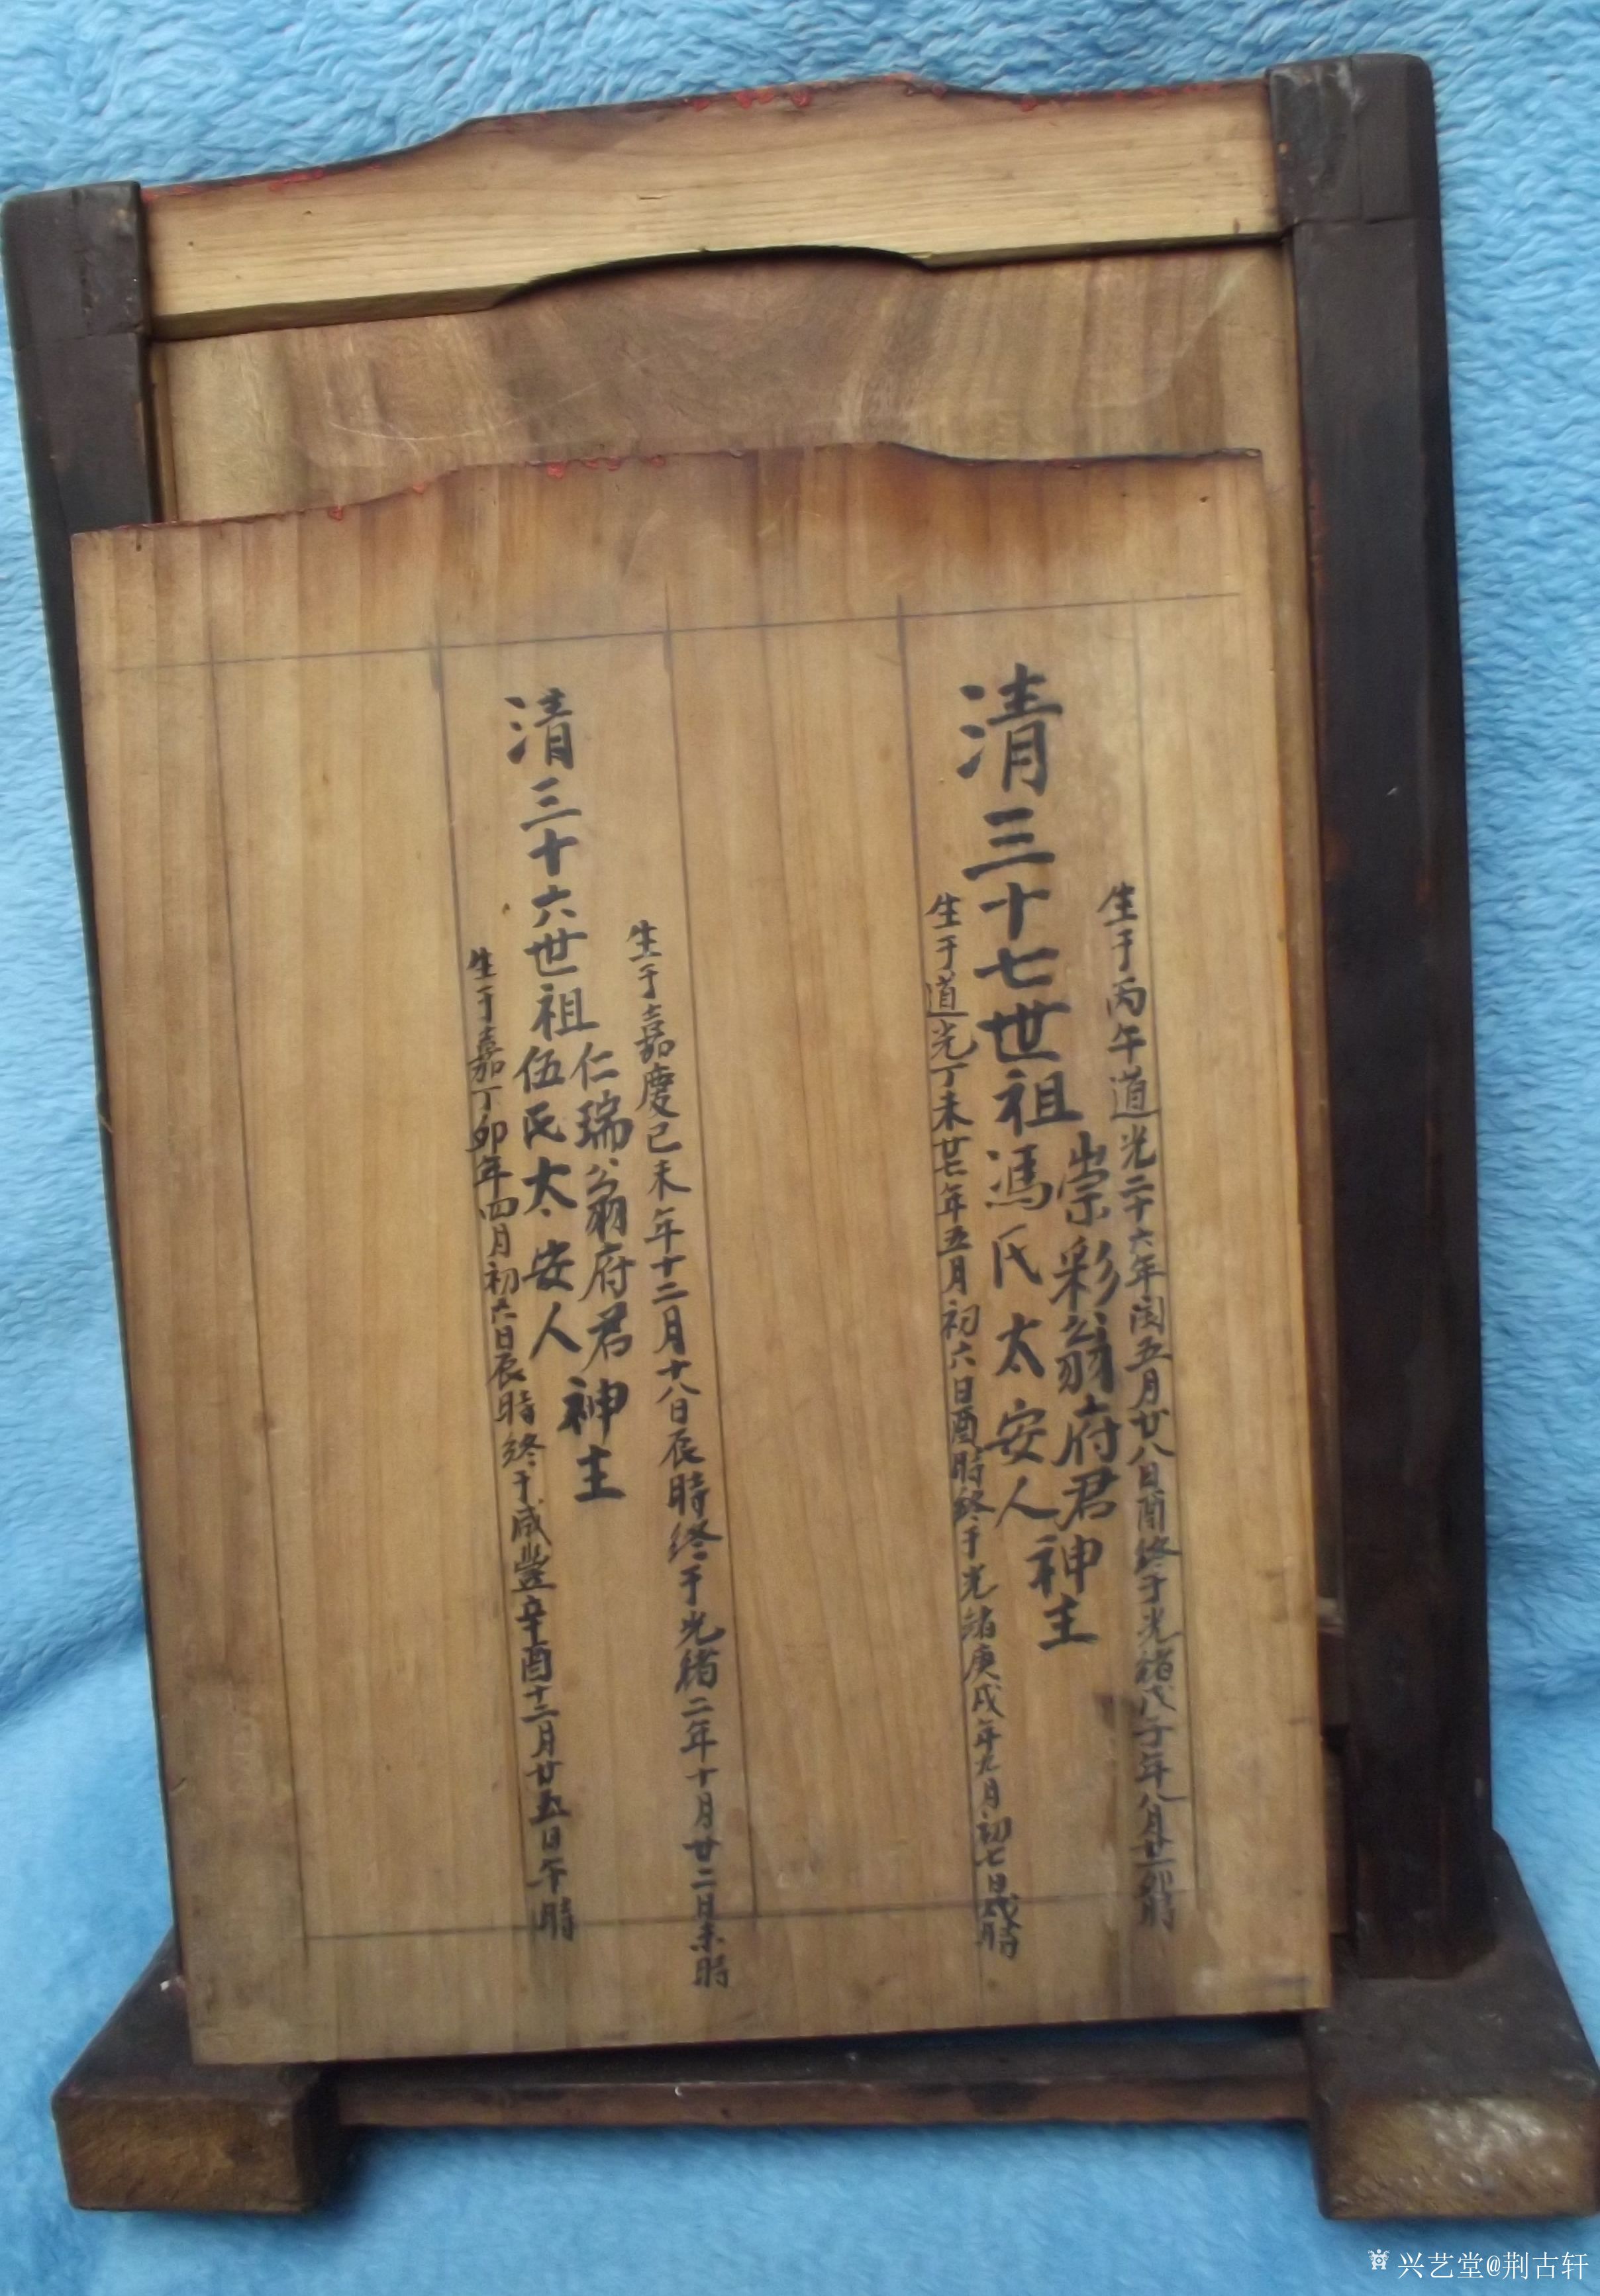 生于丙午道光二十六年闰五月廿八日酉終于光緒戊子年八月廿一卯時
清三十七世祖
崇彩翁府君
馮氏太安人
神主
生于道光丁未廿七年五月初六日酉時終于光緒庚戌年九月初七日戌時
生于嘉慶己未年十二月十八日辰時終于光緒二年十月廿二日未時
清三十六世祖
仁瑞翁府君
伍氏太安人
神主
生于嘉丁卯年四月初六日辰時終于咸豐辛酉十二月廿五日午時
兴艺堂@荆古轩